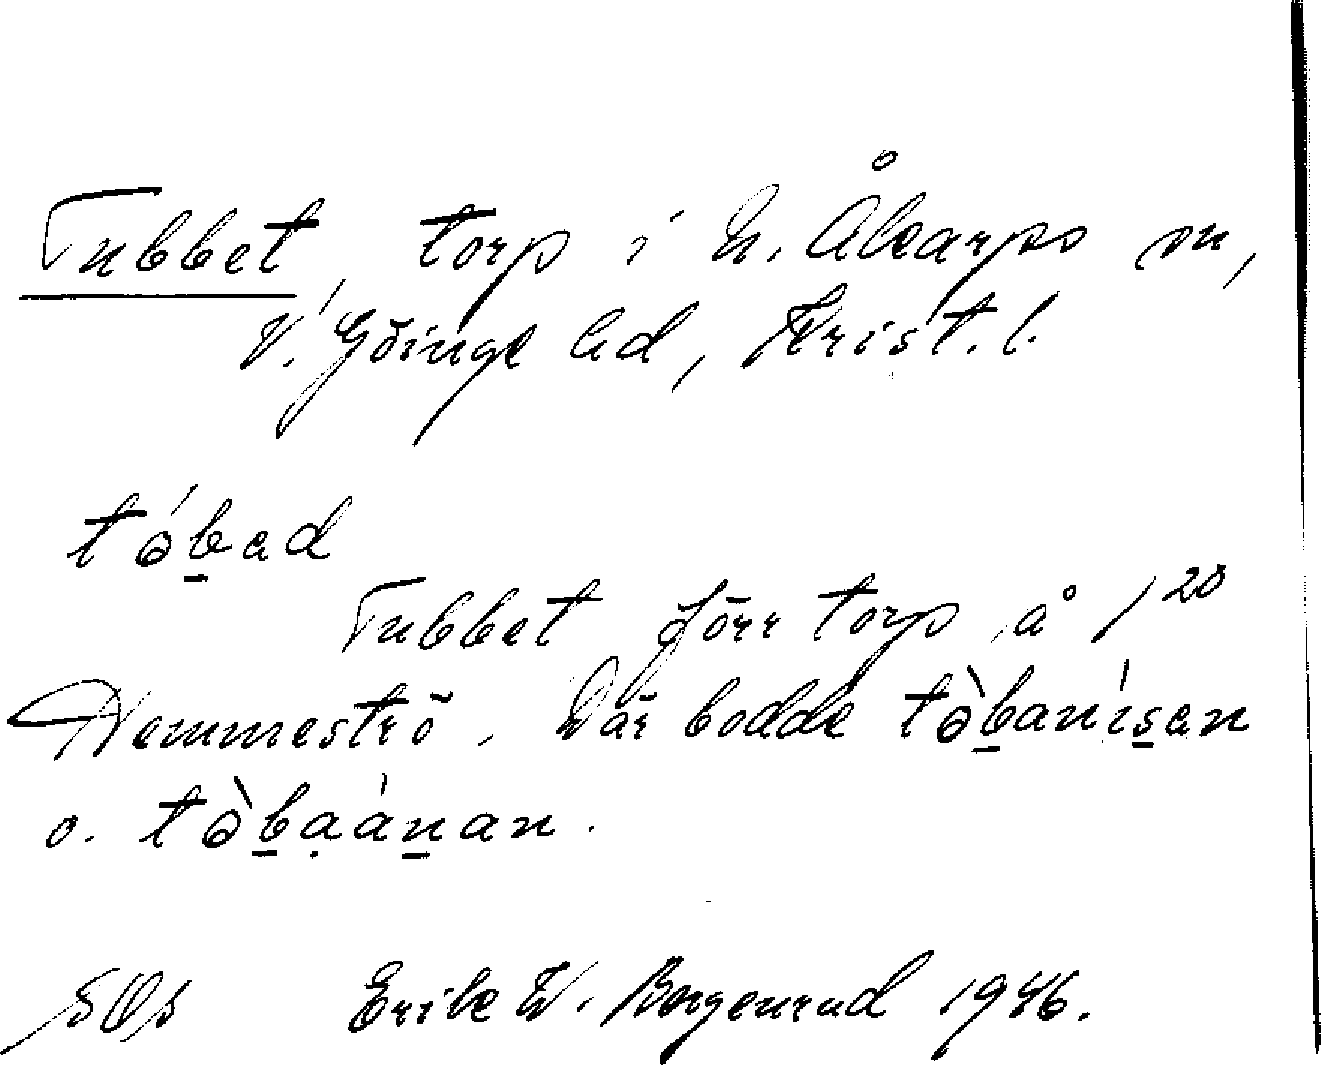 Tubbet, torp i N. Åkarps sn,
V. Göinge hd, Krist. l.
tə́bad
Tubbet förr torp å 1²⁰
Hemmeströ. Där bodde tə̀banísan
o. tə̀bạánan.
SOs Erik W. Borgenrud 1946.